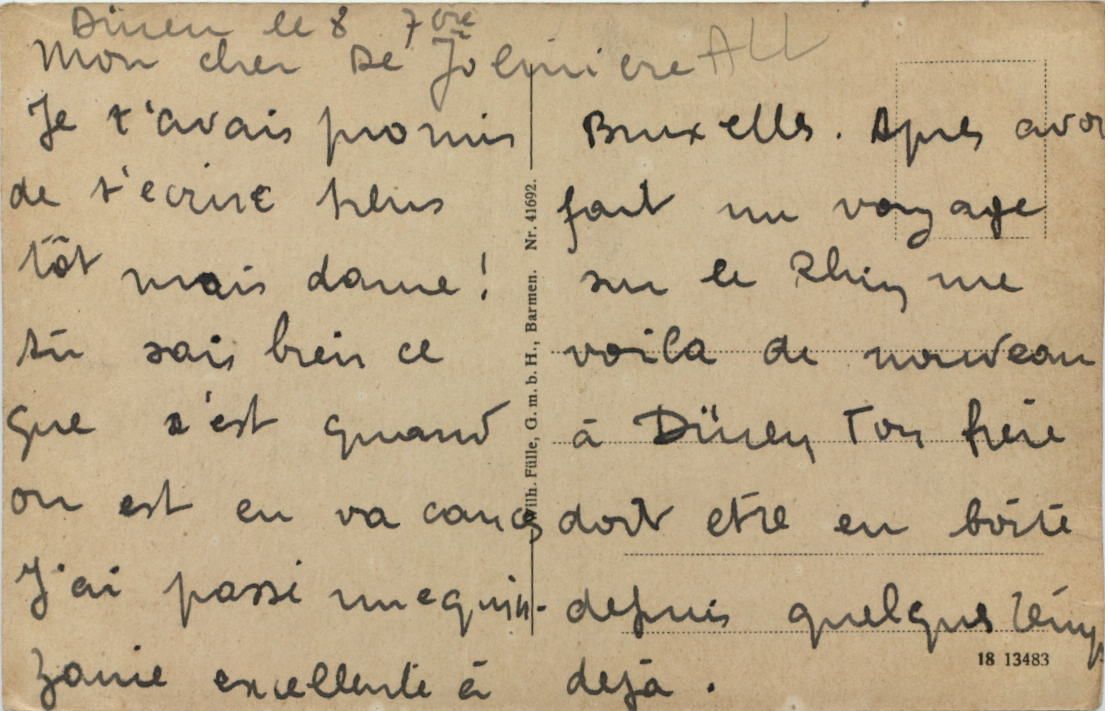 Düren le 8 7bre
Mon cher De Jolinière
ALL
Je t'avais promis
de t'ecrire plus
tôt mais dame !
tu sais bien ce
que c'est quand
on est en vacances
J'ai passé une quin-
zaine excellente à
Bruxelles. Apres avoir
fait un voyage
sur le Rhin me
voila de nouveau
à Düren Ton frère
doit etre en boîte
depuis quelques temps
dejà .
Wilh. Fülle, G. m. b. H., Barmen. Nr. 41692.
18 13483